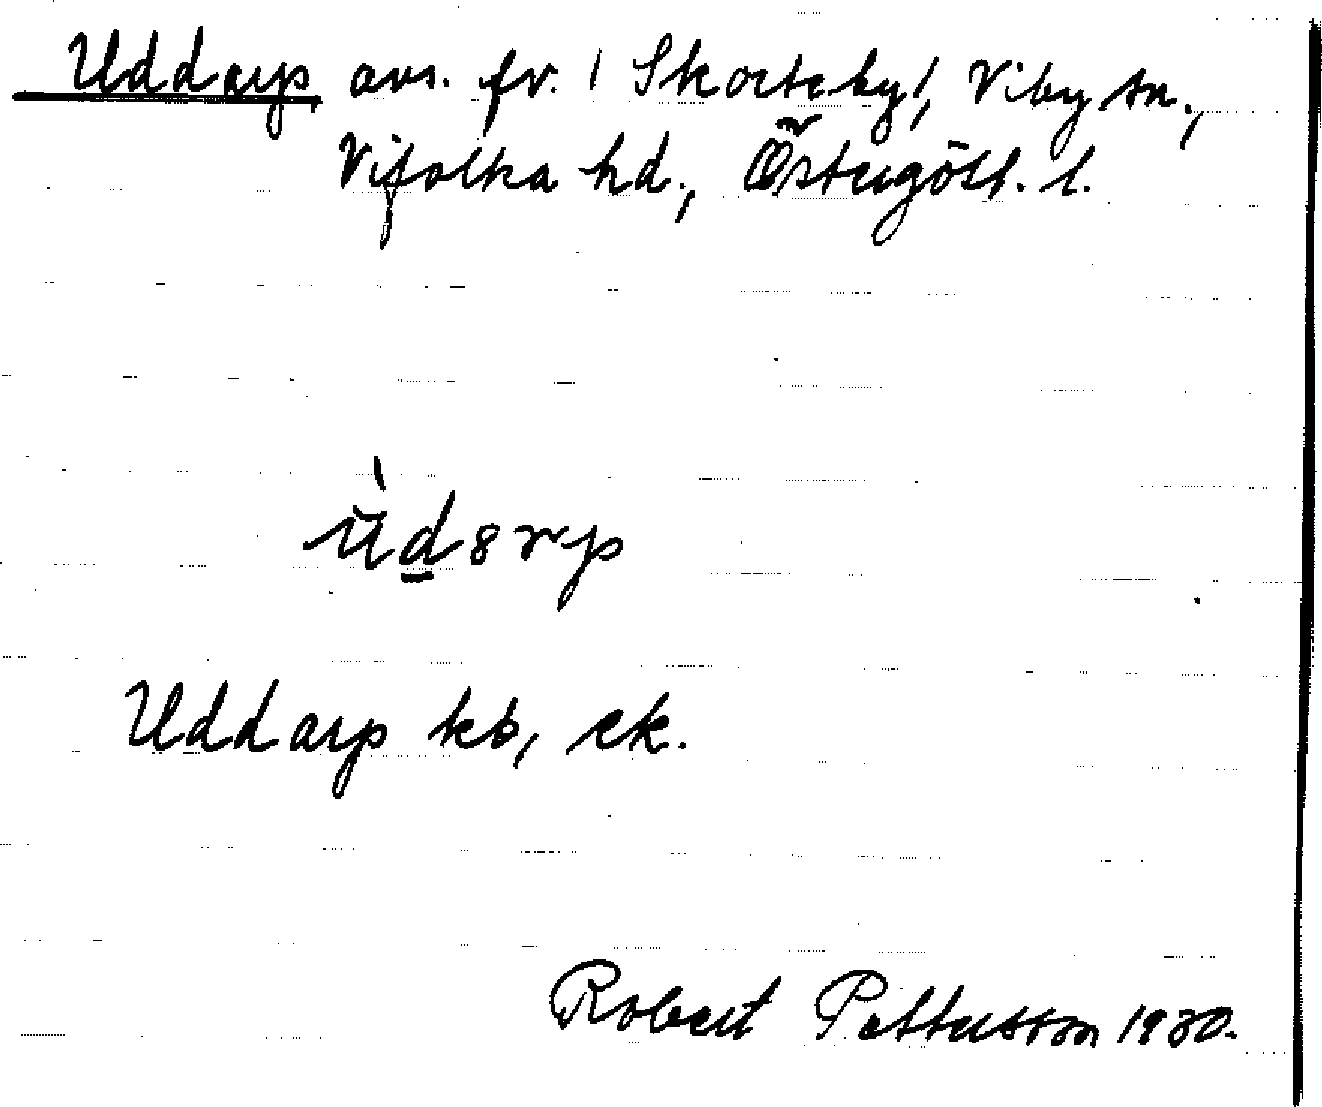 Uddarp avs. fr. / Skorteby /, Viby sn.,
Vifolka hd., Östergötl. l.
ùd8rp
Uddarp kb, ek.
Robert Pettersson 1930.